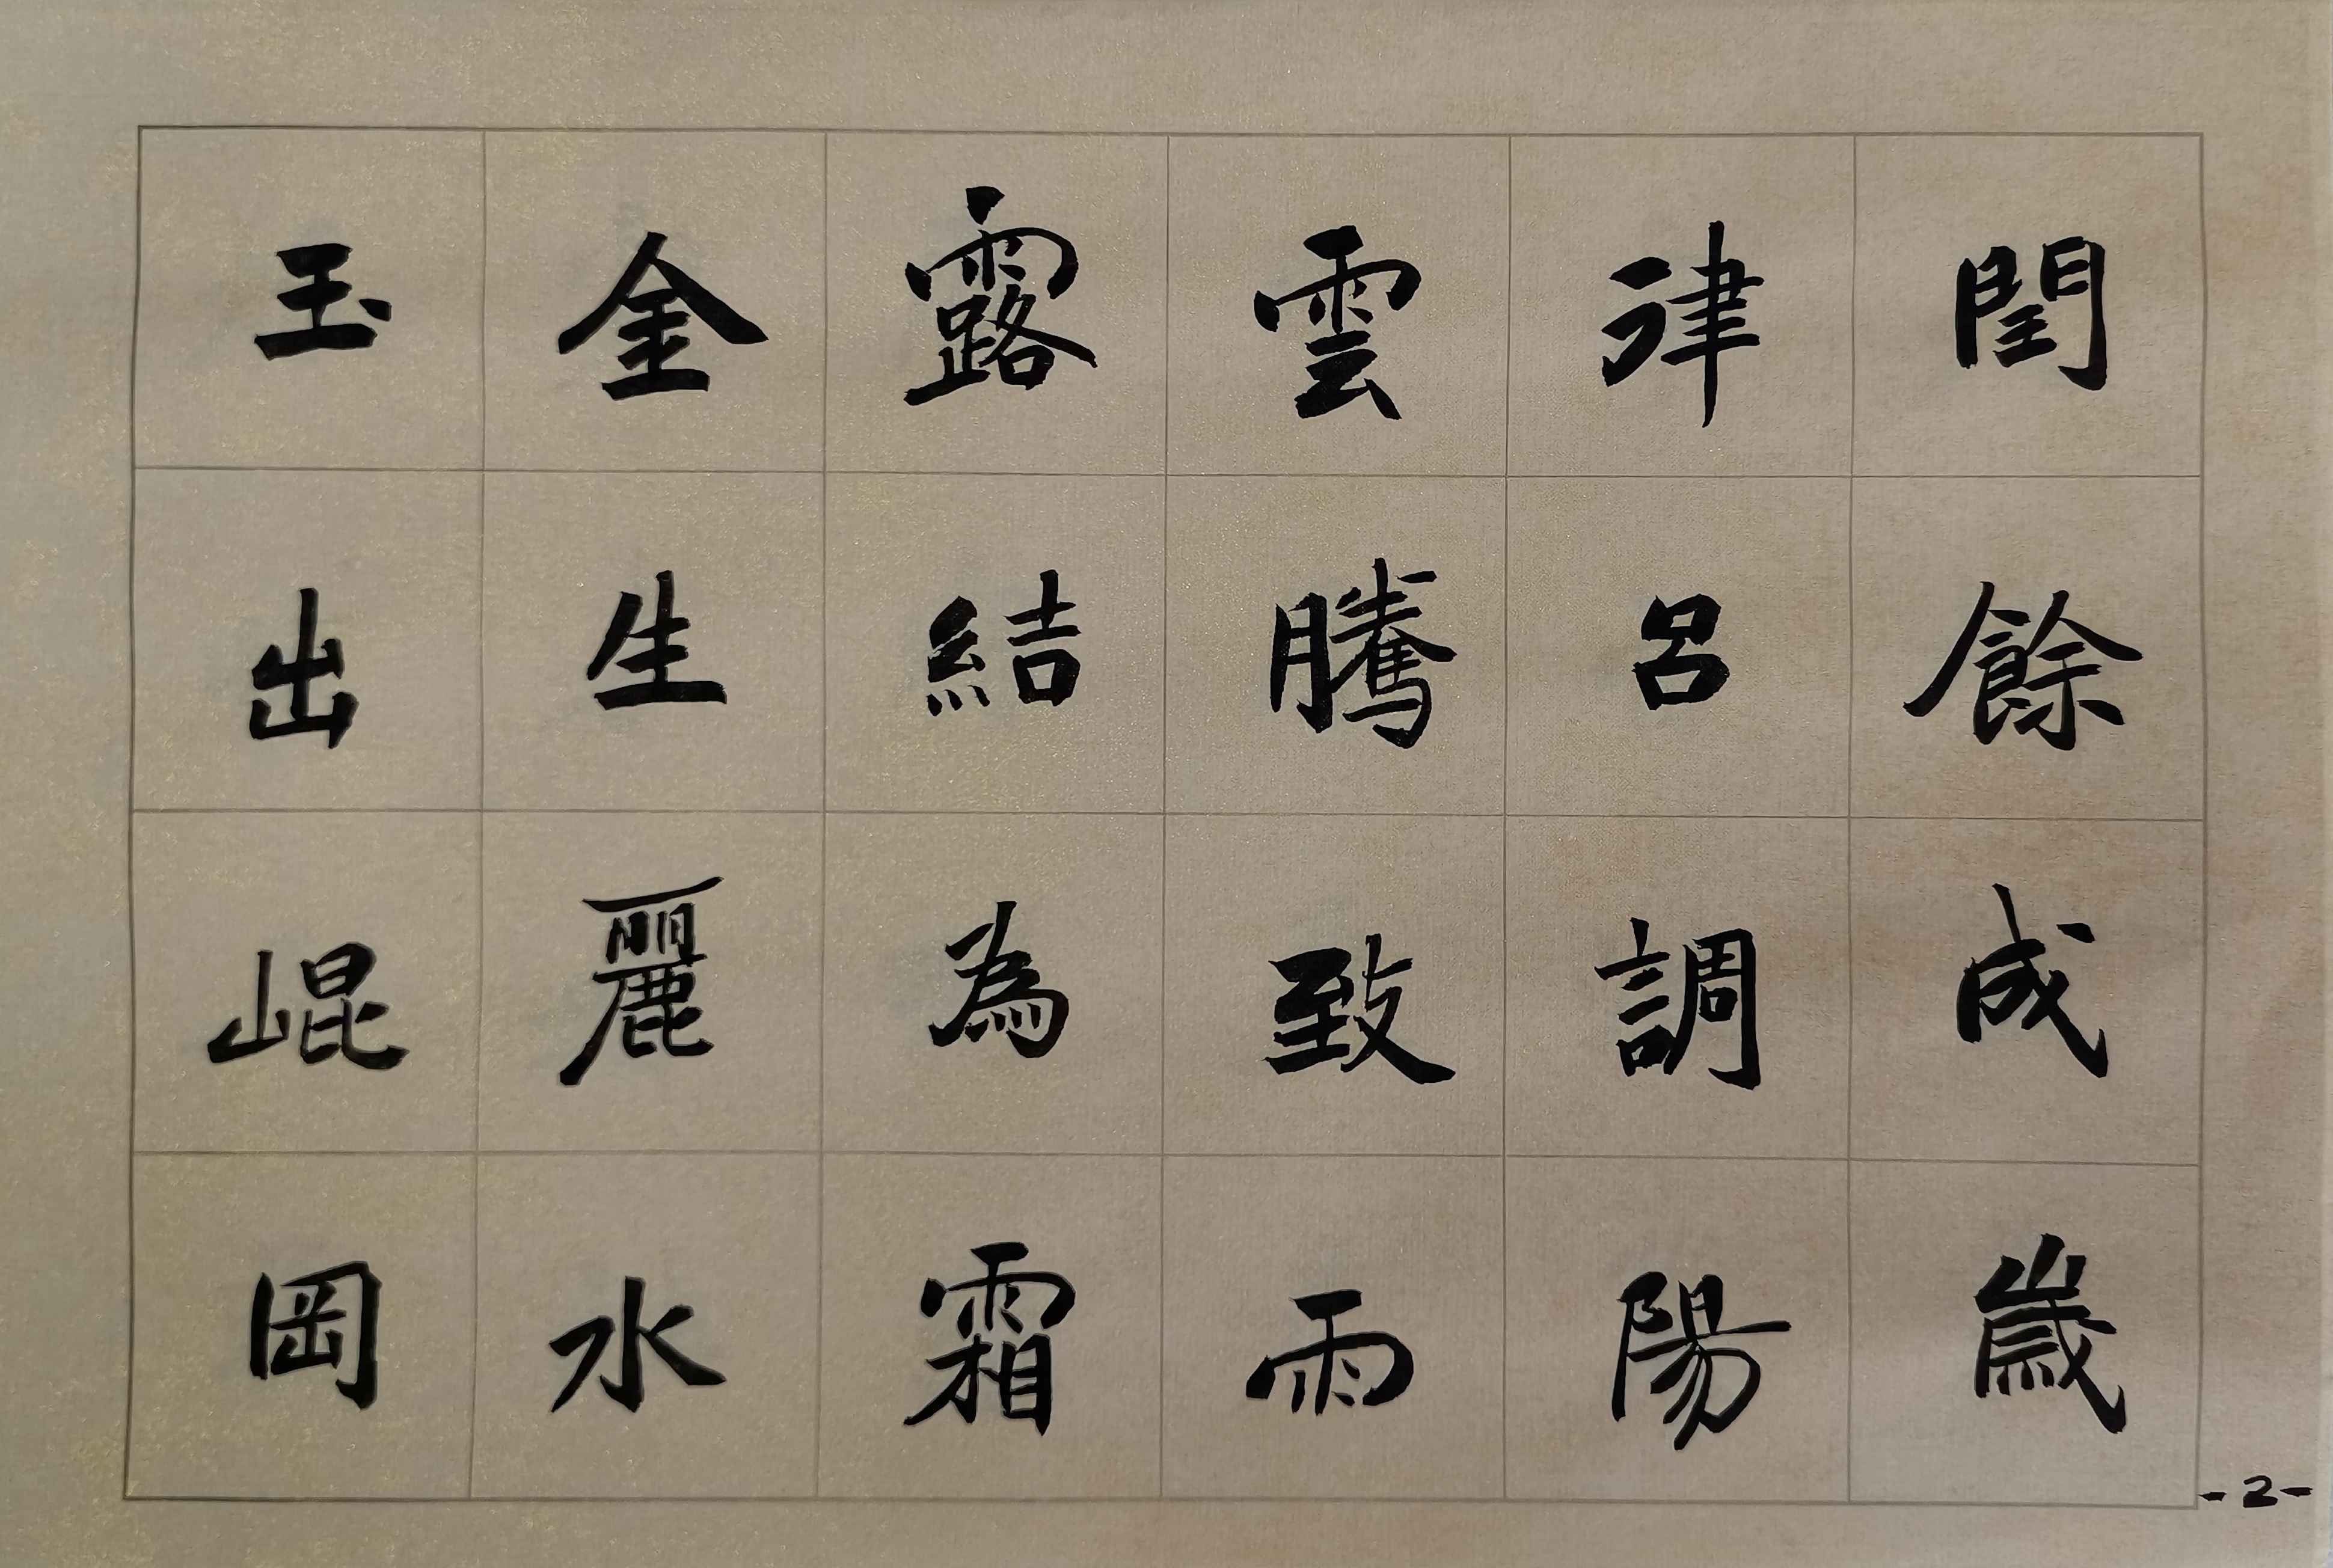 閏餘成歲
律呂調陽
雲騰致雨
露結為霜
金生麗水
玉出崐岡
-2-